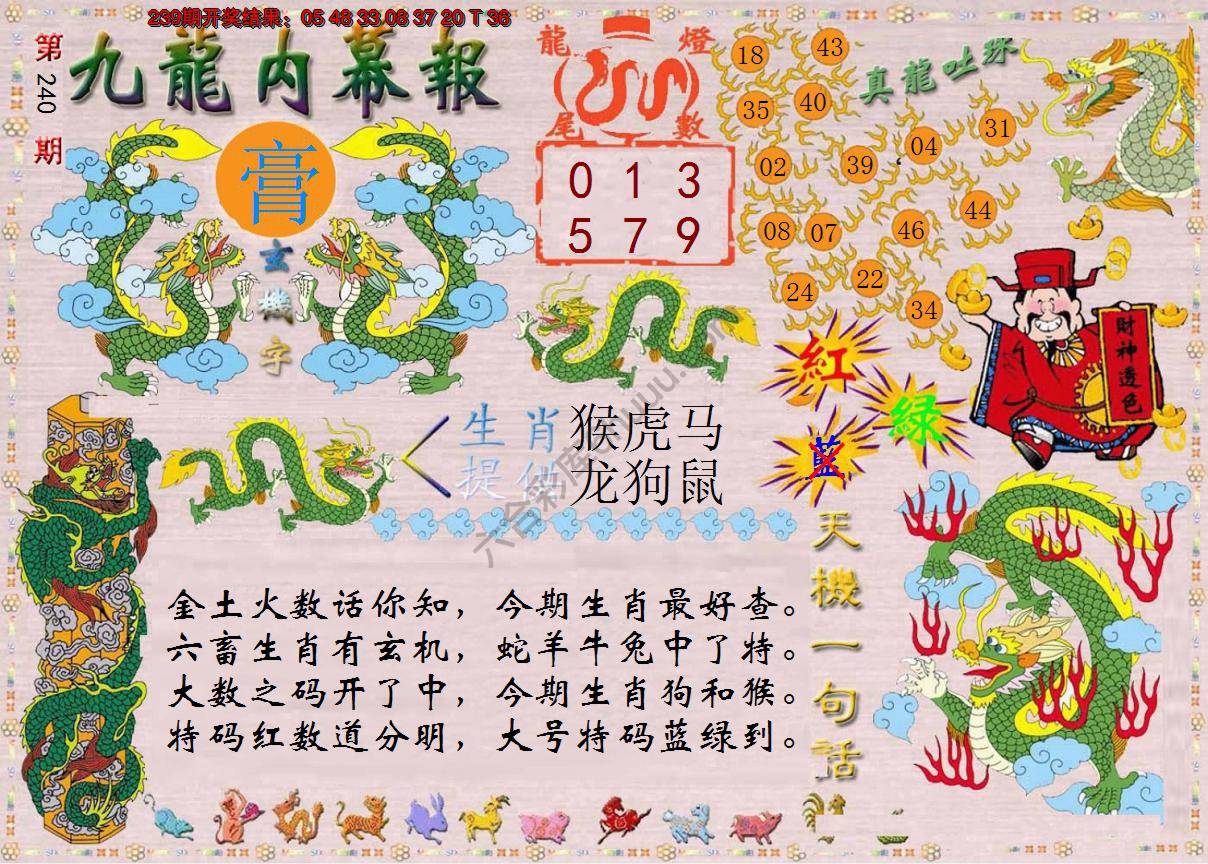 239期开奖结果：05 48 33 08 37 20 T 36
第240期
九龍内幕報
膏
玄機字
龍燈
尾數
0 1 3
5 7 9
真龍吐珠
18 43
35 40
02 39 04 31
08 07 46 44
24 22 34
財神透色
紅
綠
藍
生肖 猴虎马
提供 龙狗鼠
天機一句話
金土火数话你知，今期生肖最好查。
六畜生肖有玄机，蛇羊牛兔中了特。
大数之码开了中，今期生肖狗和猴。
特码红数道分明，大号特码蓝绿到。